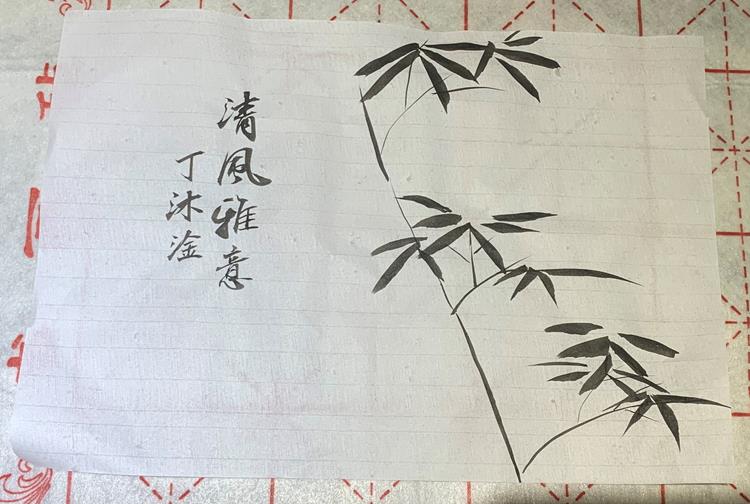 清風雅意
丁沐淦